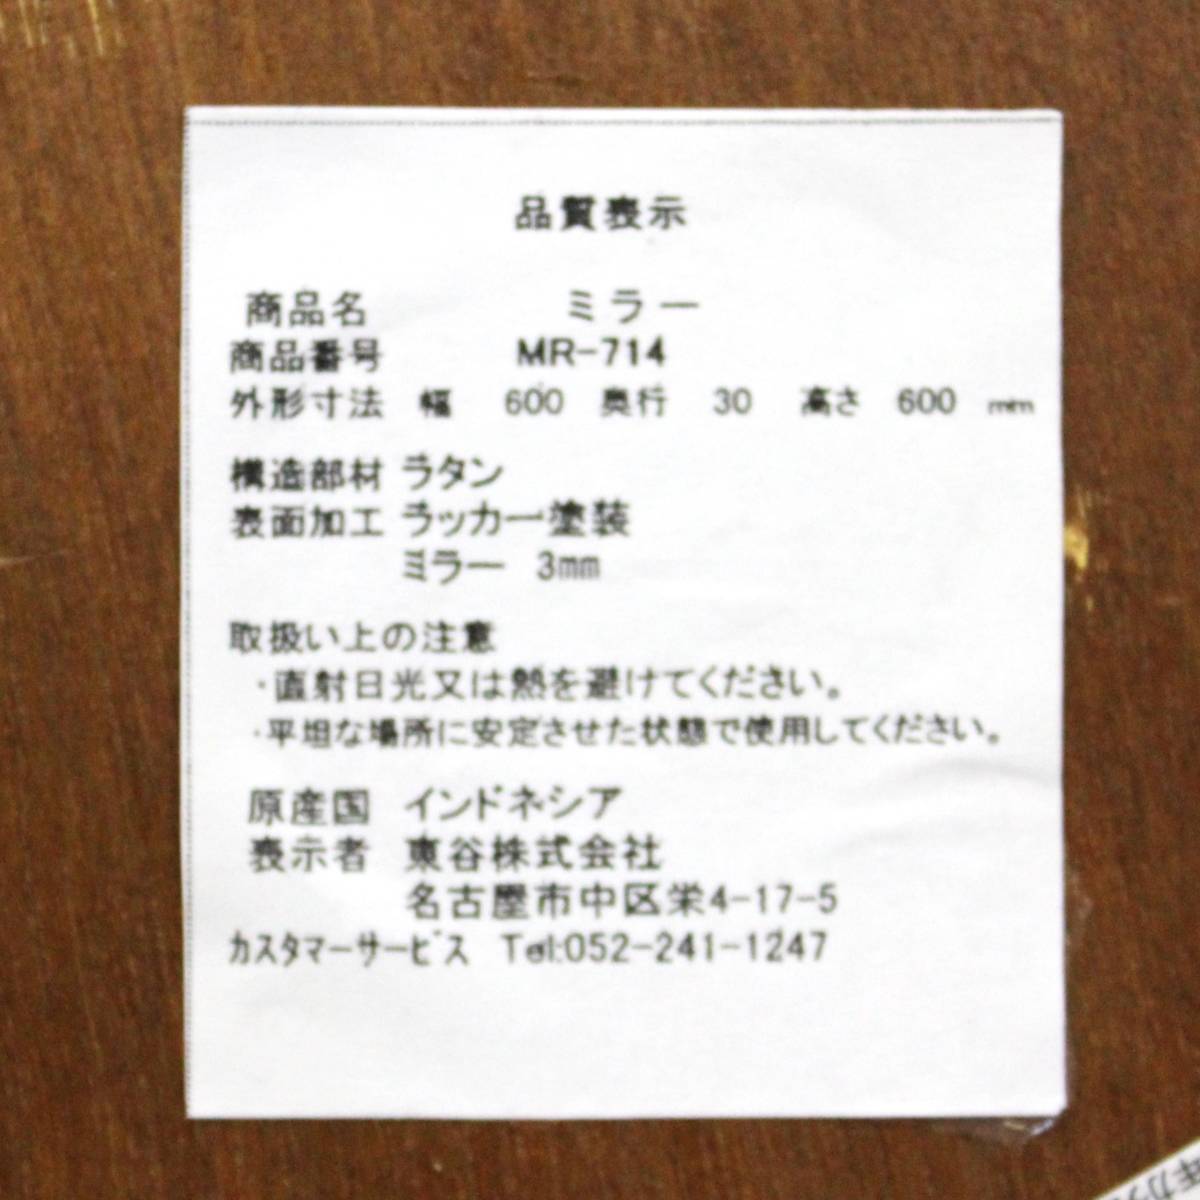 品質表示
商品名 ミラー
商品番号 MR-714
外形寸法 幅 600 奥行 30 高さ 600 mm
構造部材 ラタン
表面加工 ラッカー塗装
ミラー 3mm
取扱い上の注意
・直射日光又は熱を避けてください。
・平坦な場所に安定させた状態で使用してください。
原産国 インドネシア
表示者 東谷株式会社
名古屋市中区栄4-17-5
カスタマーサービス Tel:052-241-1247